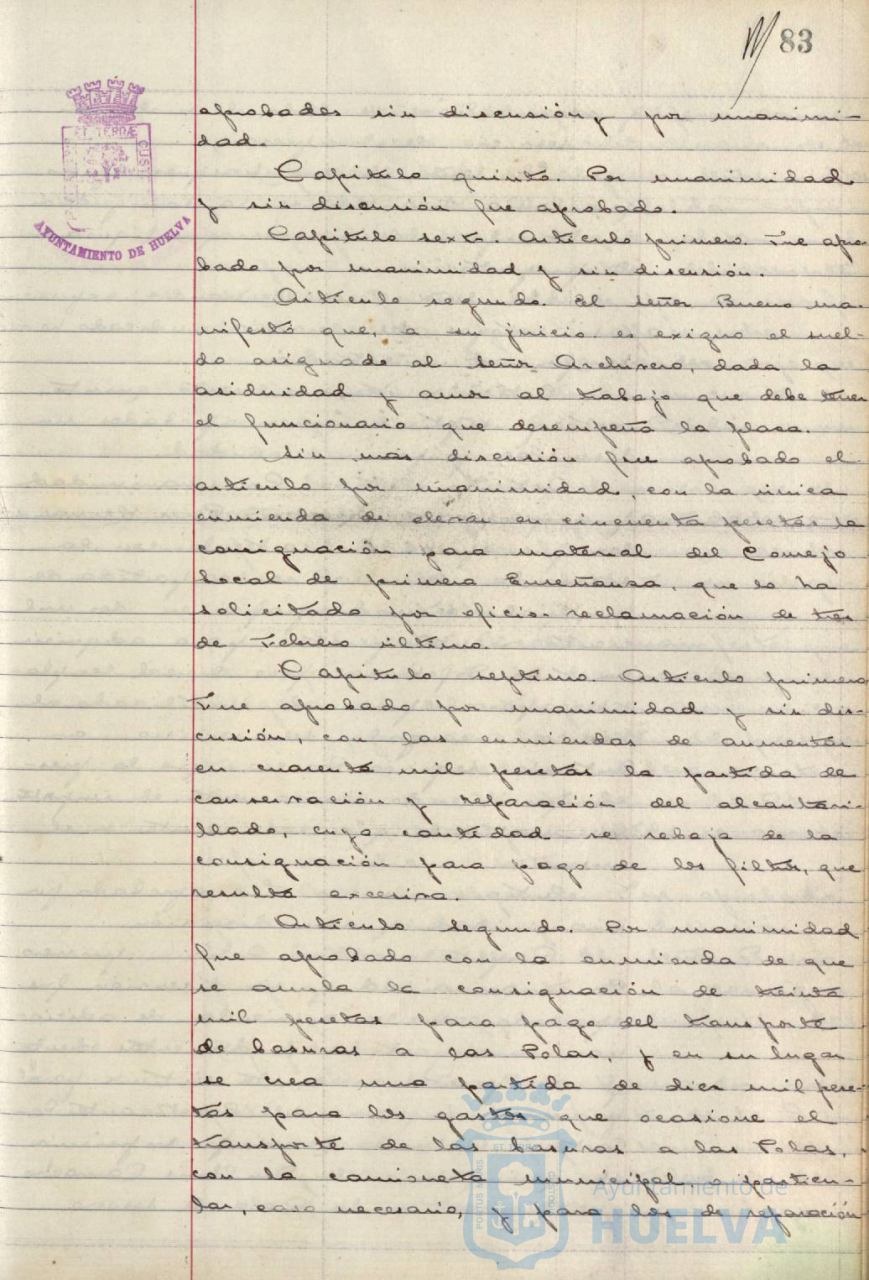 83
PORTUS MARIS ET TERRAE CUSTODIA
AYUNTAMIENTO DE HUELVA
aprobados sin discusión y por unanimi-
dad.
Capitulo quinto. Por unanimidad
y sin discusión fue aprobado.
Capitulo sexto. Articulo primero. Fue apro-
bado por unanimidad y sin discusión.
Articulo segundo. El señor Bueno ma-
nifestó que, a su juicio, es exiguo el suel-
do asignado al señor Archivero, dada la
asiduidad y amor al trabajo que debe tener
el funcionario que desempeña la plaza.
Sin más discusión fue aprobado el
articulo por unanimidad, con la única
enmienda de elevar en cincuenta pesetas la
consignación para material del Consejo
Local de primera Enseñanza, que lo ha
solicitado por oficio-reclamación de tres
de Febrero último.
Capitulo septimo. Articulo primero
Fue aprobado por unanimidad y sin dis-
cusión, con las enmiendas de aumentar
en cuarenta mil pesetas la partida de
conservación y reparación del alcantari-
llado, cuya cantidad se rebaja de la
consignación para pago de los filtros, que
resulta excesiva.
Articulo segundo. Por unanimidad
fue aprobado con la enmienda de que
se anula la consignación de treinta
mil pesetas para pago del transporte
de basuras a las Polas, y en su lugar
se crea una partida de diez mil pese-
tas para los gastos que ocasione el
transporte de las basuras a las Polas,
con la camioneta municipal o particu-
lar, caso necesario, y para los de reparación
Ayuntamiento de
HUELVA